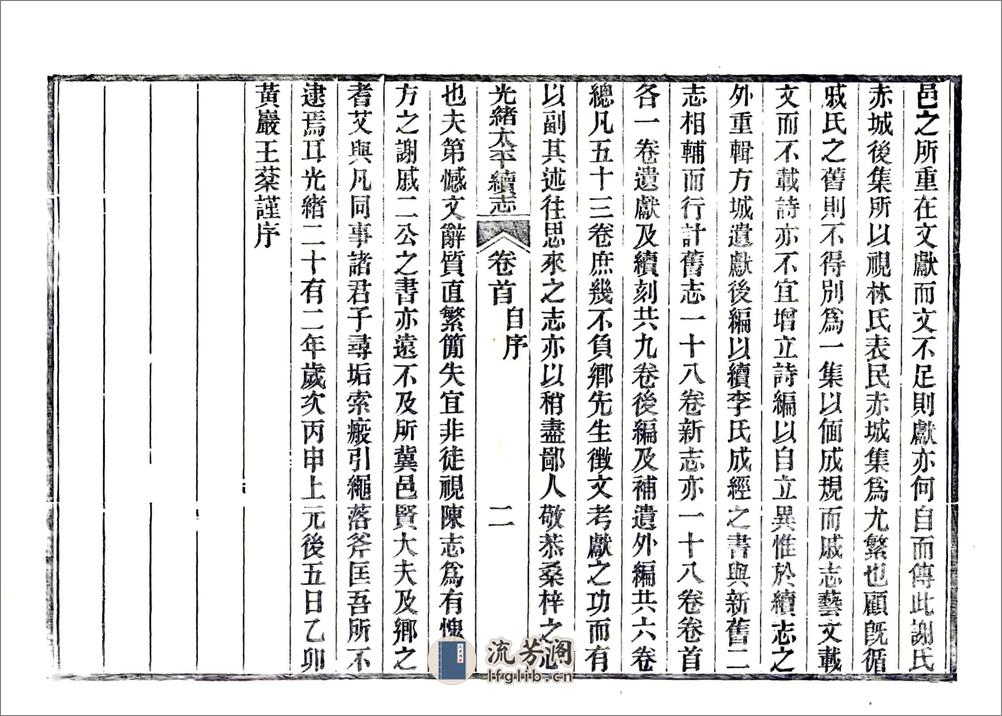 邑之所重在文獻而文不足則獻亦何自而傳此謝氏
赤城後集所以視林氏表民赤城集爲尤繁也顧旣循
戚氏之舊則不得別爲一集以偭成規而戚志藝文載
文而不載詩亦不宜增立詩編以自立異惟於續志之
外重輯方城遺獻後編以續李氏成經之書與新舊二
志相輔而行計舊志一十八卷新志亦一十八卷卷首
各一卷遺獻及續刻共九卷後編及補遺外編共六卷
總凡五十三卷庶幾不負鄉先生徵文考獻之功而有
以副其述往思來之志亦以稍盡鄙人敬恭桑梓之心
光緒太平續志 卷首 自序 二
也夫第憾文辭質直繁簡失宜非徒視陳志爲有愧
方之謝戚二公之書亦遠不及所冀邑賢大夫及鄉之
耆艾與凡同事諸君子尋垢索瘢引繩落斧匡吾所不
逮焉耳光緒二十有二年歲次丙申上元後五日乙卯
黃巖王棻謹序
流芳阁
lfglib.cn